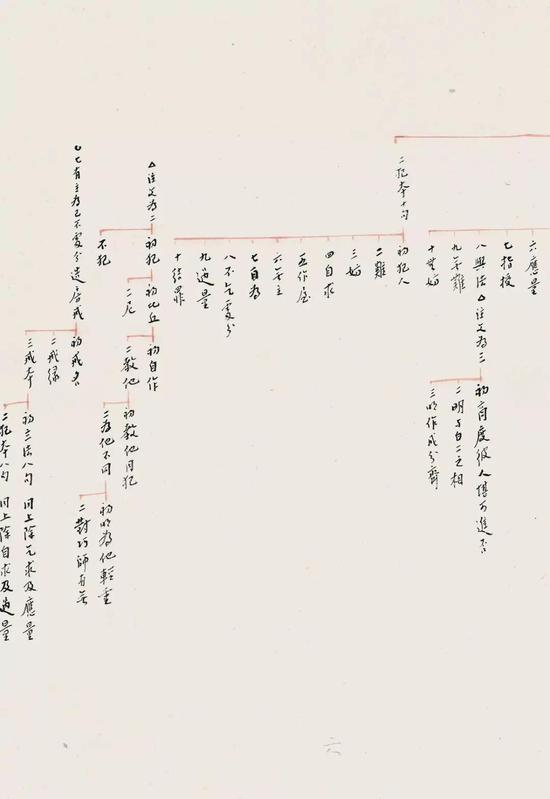 六應量
七指授
八與法 △注文為三
初商度彼人堪可進否
二明与白二之相
三明作成分齊
九無難
十無妨
二犯本十句
初犯人
二難
三妨
四自求
五作屋
六無主
七自為
八不乞處分
九過量
十結罪
△注文為二
初犯
初比丘
初自作
二教他
初教他同犯
二為他不同
初明為他輕重
二對巧師有無
二尼
不犯
七有主為己不處分造房戒
初戒名
二戒緣
三戒本
初立法八句 同上除乞求及應量
二犯本八句 同上除自求及過量
六